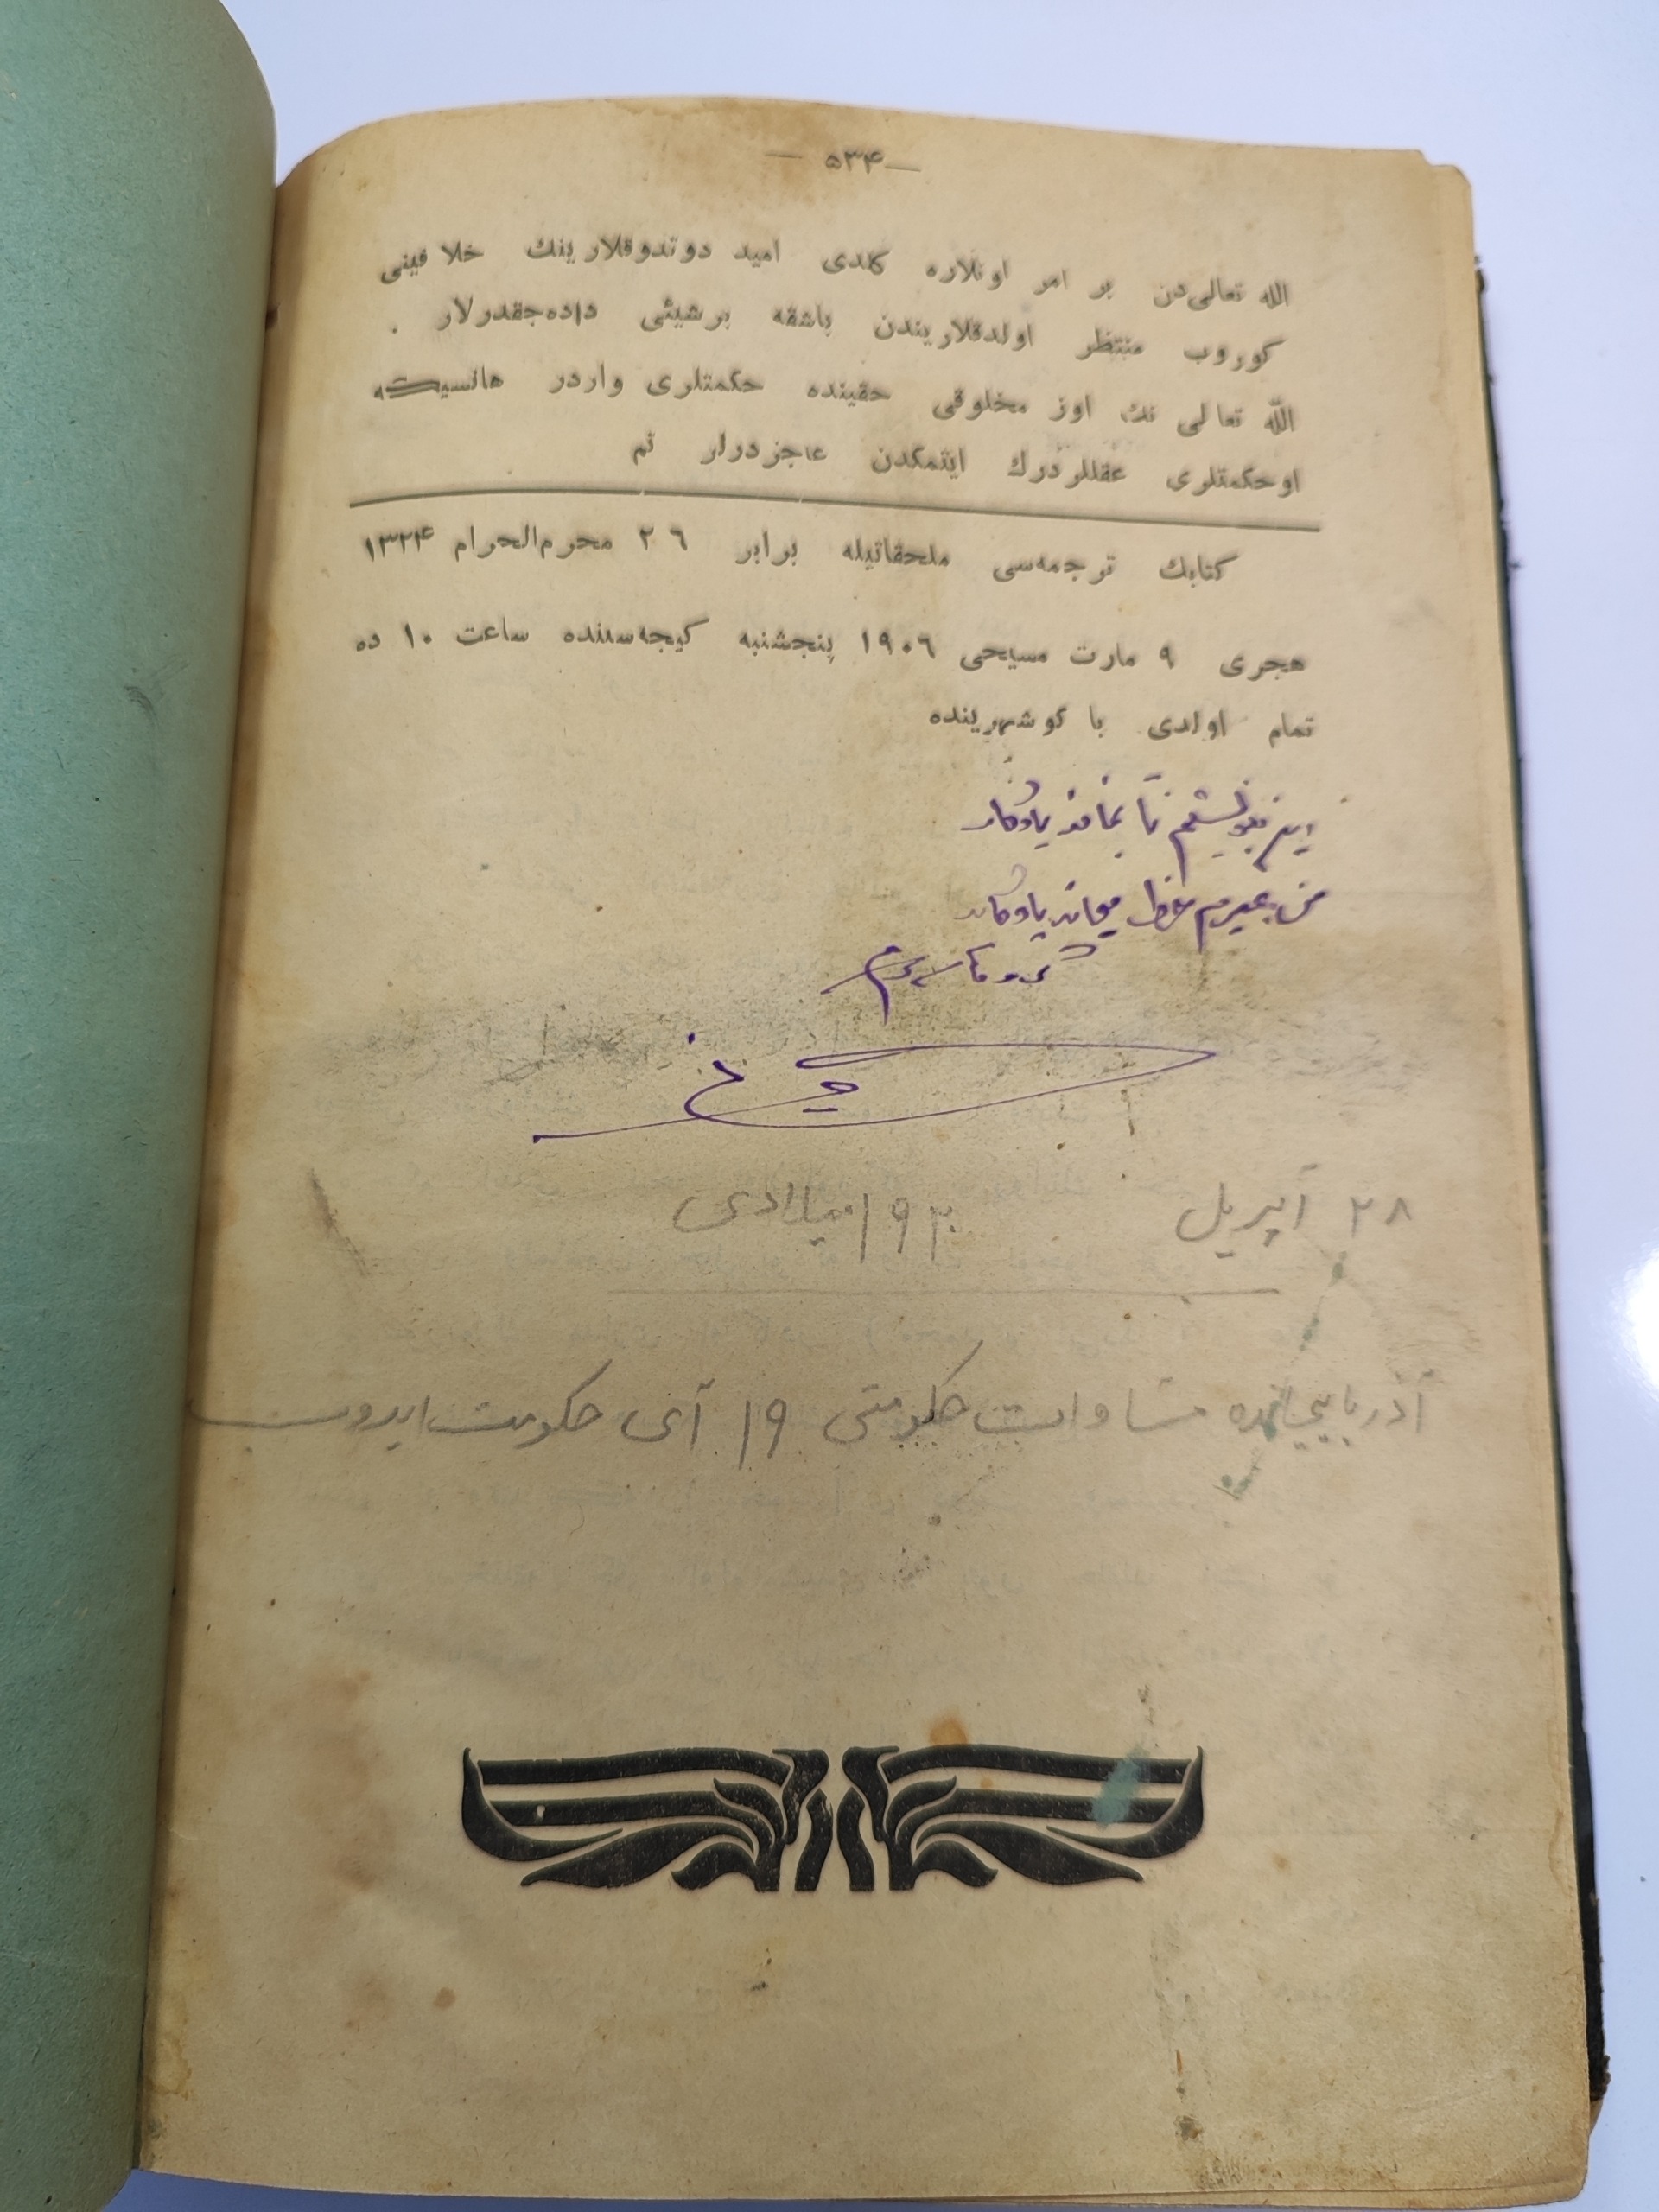 — ۵۳۴ —
الله تعالی‌دن بر امر اونلاره کلدی امید دوتدوقلارینك خلافینی
کوروب منتظر اولدقلاریندن باشقه برشیئی داده‌جقدرلار .
اللّه تعالی نك اوز مخلوقی حقینده حکمتلری واردر هانسیکه
اوحکمتلری عقللر درك ایتمکدن عاجزدرلر تم
کتابك ترجمه‌سی ملحقاتیله برابر ۲۶ محرم‌الحرام ۱۳۲۴
هجری ۹ مارت مسیحی ۱۹۰۶ پنجشنبه کیجه‌سنده ساعت ۱۰ ده
تمام اولدی باکوشهرینده
این نوشتم تا بماند یادگار
من بمیرم خط بماند یادگار
۲۸ آپریل ۱۹۲۰ میلادی
آذربایجانده مساوات حکومتی ۱۹ آی حکومت ایدوب